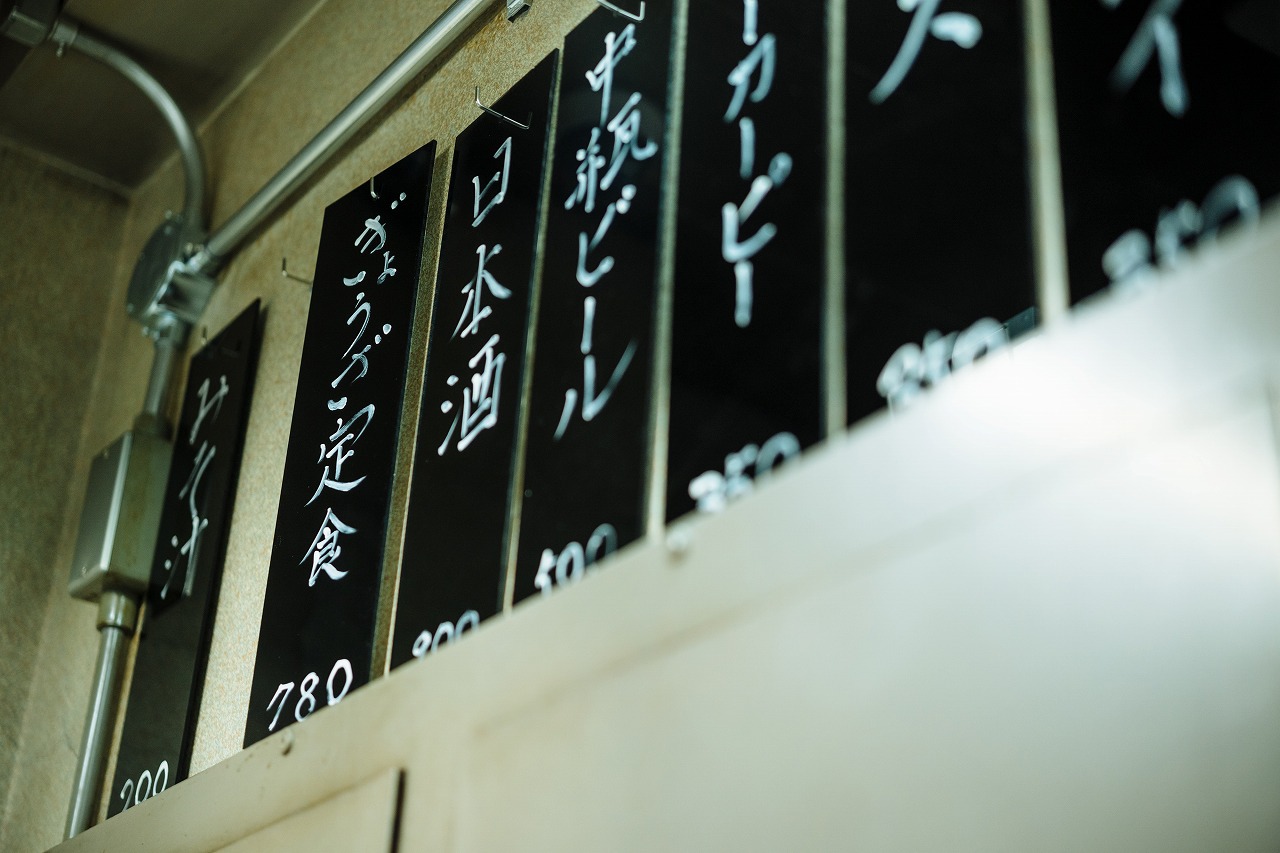 イ
350
ス
ーカーピー
350
中瓶ビール
500
日本酒
ぎょうざ定食
780
みそ汁
200